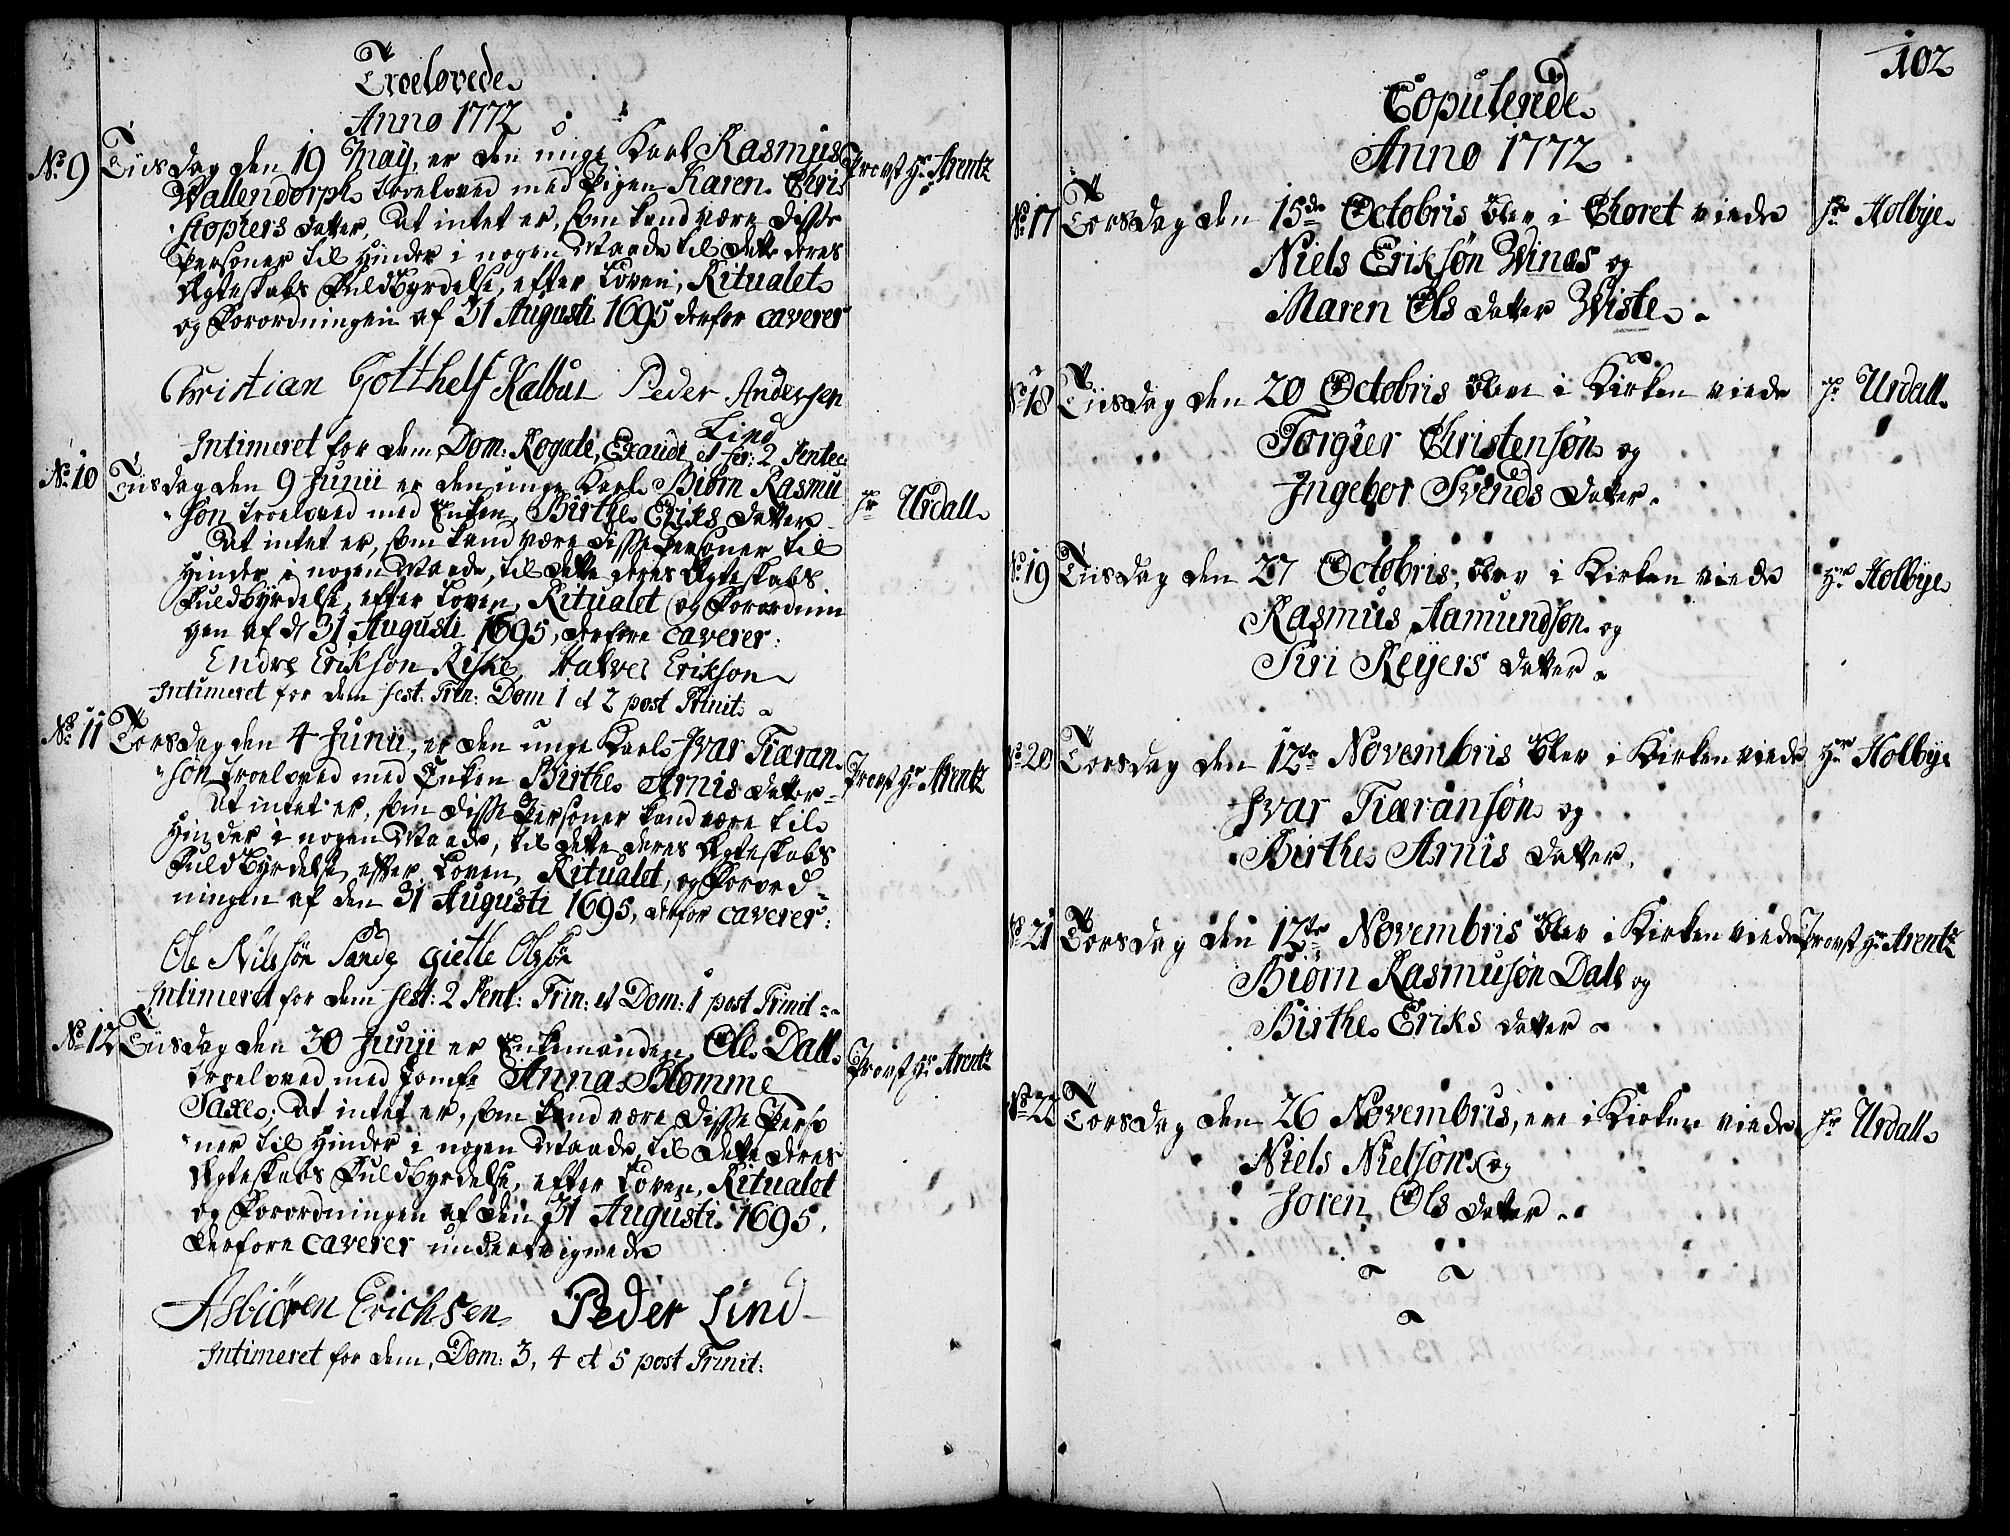 Troelovede
Anno 1772
No 9 Tiisdag den 19 May, er den unge Karl Rasmus Provst Hr Arentz
Wallendorph troeloved med Pigen Karen Chri
stophers datter, At intet er, som kand være disse
Personer til Hinder i nogen Maade til dette deres
Ægteskabs Fuldbyrdelse, efter Loven, Ritualet
og Forordningen af 31 Augusti 1695 derfor caverer
Christian Gotthelf Kalbut Peder Andersen
Lind
Intimeret for dem, Dom: Rogate, Exaudi et fer: 2 Pentec
No 10 Tiisdag den 9 Junii er den unge Karl Biørn Rasmu Hr Urdall
søn troeloved med Enken, Birthe Eriks datter
At intet er, som kand være disse Personer til
Hinder i nogen Maade, til dette deres Ægteskabs
Fuldbyrdelse, efter Loven, Ritualet og Forordnin
gen af d 31 Augusti 1695, derfore caverer:
Endre Erikson Riske, Halver Erikson
Intimeret for dem fest: Trin: Dom 1 et 2 post Trinit:
No 11 Torsdag den 4 Junii, er den unge Karl Ivar Tiæran Provst Hr Arentz
søn troeloved med Enken Birthe Arnis datter
At intet er, som disse Personer kand være til
Hinder i nogen Maade, til dette deres Ægteskabs
Fuldbyrdelse, efter Loven, Ritualet, og Forord
ningen af den 31 Augusti 1695, derfor caverer:
Ole Nilssøn Sande gielle Olssøn
Intimeret for dem fest: 2 Pent: Trin: et Dom: 1 post Trinit
No 12 Tiisdag den 30 Junii er Enkemanden, Ole Dall Provst Hr Arentz
troeloved med Jomfr Anna Blomme
Saxe; At intet er, som kand være disse Perso
ner til Hinder i nogen Maade, til dette deres
Ægteskabs Fuldbyrdelse, efter Loven, Ritualet
og Forordningen af den 31 Augusti 1695,
derfore caverer underteignede
Asbiören Erichsen Peder Lind
Intimeret for dem, Dom: 3, 4 et 5 post Trinit:
102
Copulerede
Anno 1772
No 17 Torsdag den 15de Octobris blev i Choret viede Hr Holbye
Niels Eriksøn Winæs og
Maren Ols datter Wiste
No 18 Tiisdag den 20 Octobris blev i Kirken viede Hr Urdall
Torgier Christensøn og
Ingebor Svends datter
No 19 Tiisdag den 27 Octobris, blev i Kirken viede Hr Holbye
Rasmus Aamundson og
Siri Reyers datter
No 20 Torsdag den 12te Novembris blev i Kirken viede Hr Holbye
Ivar Tiæransøn og
Birthe Arnis datter
No 21 Torsdag den 12te Novembris blev i Kirken viede Provst Hr Arentz
Biørn Rasmusøn Dale og
Birthe Eriks datter
No 22 Torsdag den 26 Novembris, ere i Kirken viede Hr Urdall
Niels Nielsøn og
Joren Ols datter